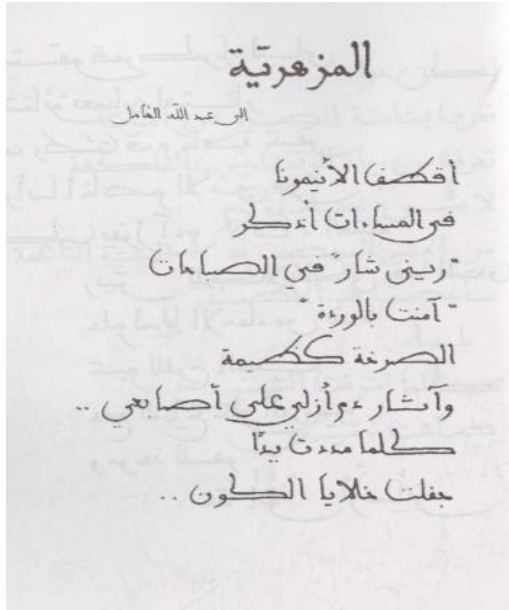 المزهرية
إلى عبد الله العامل
أقطف الأنيمونا
في المساءات أتذكر
"ريني شار" في الصباحات
"آمنت بالوردة"
الصرخة كظيمة
وآثار دم أزلي على أصابعي ..
كلما مددت يدًا
جفلت خلايا الكون ..